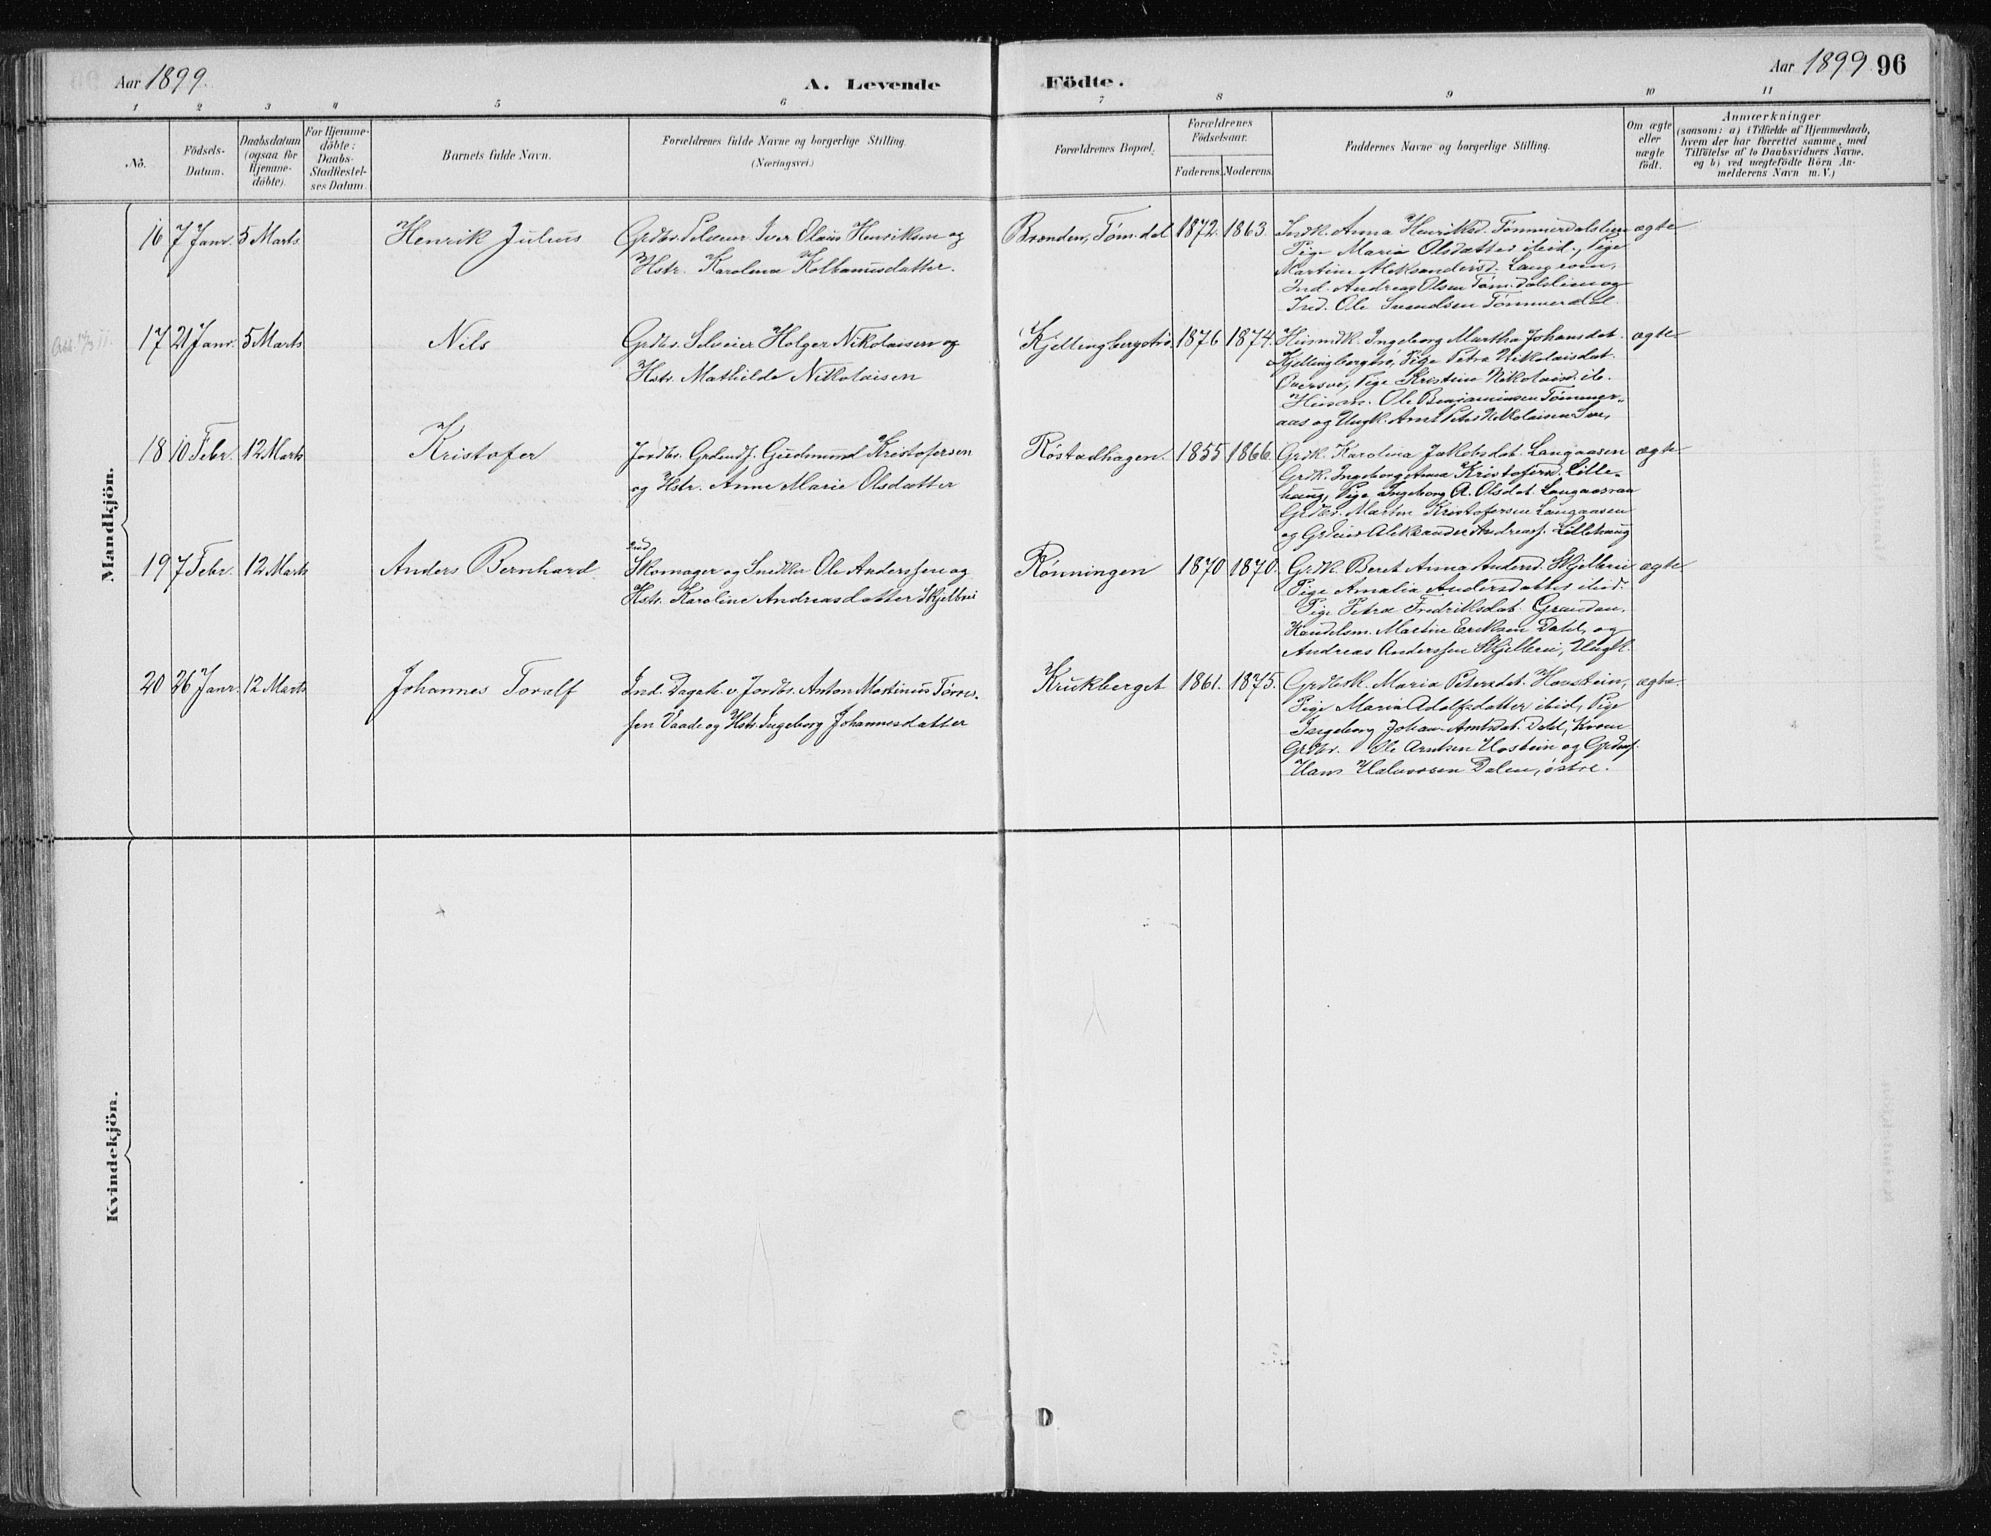 Aar 1899.
A. Levende Födte.
Aar 1899 96
1 2 3 4 5 6 7 8 9 10 11
No.
Födsels-
Datum.
Daabsdatum
(ogsaa for
Hjemme-
döbte).
For Hjemme-
döbte:
Daabs-
Stadfestel-
ses Datum.
Barnets fulde Navn.
Forældrenes fulde Navne og borgerlige Stilling.
(Næringsvei.)
Forældrenes Bopæl.
Forældrenes
Födselsaar.
Faderens. Moderens.
Faddernes Navne og borgerlige Stilling.
Om ægte
eller
uægte
født.
Anmærkninger
(saasom: a) i Tilfælde af Hjemmedaab,
hvem der har forrettet samme, med
Tilföielse af to Daabsvidners Navne.
og b) ved uægtefödte Börn An-
melderens Navn m. V.)
Mandkjön.
16 7 Janr. 5 Marts
Henrik Julius
Grdbr. Selveier Iver Olaus Henriksen og
Hstr. Karolina Kolbanusdatter.
Brænden, Töm.dal
1872. 1863.
Indk. Anna Henriksd. Tömmerdalslien
Pige Maria Olsdatter ibid., Pige
Martine Aleksandersd. Langeven,
Ind. Andreas Olsen Töm.dalslien og
Ind. Ole Svendsen Tömmerdal
ægte
17 21 Janr. 5 Marts
Nils
Grdbr. Selveier Holger Nikolaisen og
Hstr. Mathilde Nikolaisen
1876 1874.
Husmdk. Ingeborg Martha Johansdat.
Pige Petra Nikolaisdat.
Pige Kristine Nikolaisd. ib.
Husm. Ole Benjaminsen Tömmer-
aas og Ungk. Arnt Peter Nikolaisen
ægte
18 10 Febr. 12 Marts
Kristofer
Jordbr. Gudmund Kristofersen
og Hstr. Anne Marie Olsdatter
Röstadhagen.
1855 1866.
Grdk. Karolina Jakobsdat. Langaasen
Grdk. Ingeborg Anna Kristofersd. Lille-
haug, Pige Ingeborg A. Olsdat.
Grdbr. Martin Kristofersen Langaasen
og Aleksander Andreass. Lillehaug
ægte
19 7 Febr. 12 Marts
Anders Bernhard
Ind.
Skomager og Snedker Ole Anderssen og
Hstr. Karoline Andreasdatter Skjellvei
Rönningen
1870 1870.
Grdk. Beret Anna Andersd. Skjellvei
Pige Amalia Andersdatter ibid.
Pige Petra Fredriksdat. Grandan,
Handelsm. Martin Eriksen Dahl, og
Andreas Anderssen Skjellvei, Ungk.
ægte
20 26 Janr. 12 Marts
Johannes Toralf
Ind. Dagarb. v. Jordbr. Anton Martinus Torres-
sen Vaade og Hstr. Ingeborg Johannesdatter
Krukberget
1861. 1875.
Maria Petersdat. Hovstein,
Pige Maria Adolfsdatter ibid, Pige
Ingeborg Johanna Arntsdat. Dahl,
Grdbr. Ole Arntsen Hostein og
Hans Halvorsen Dalen, östre.
ægte.
Kvindekjön.